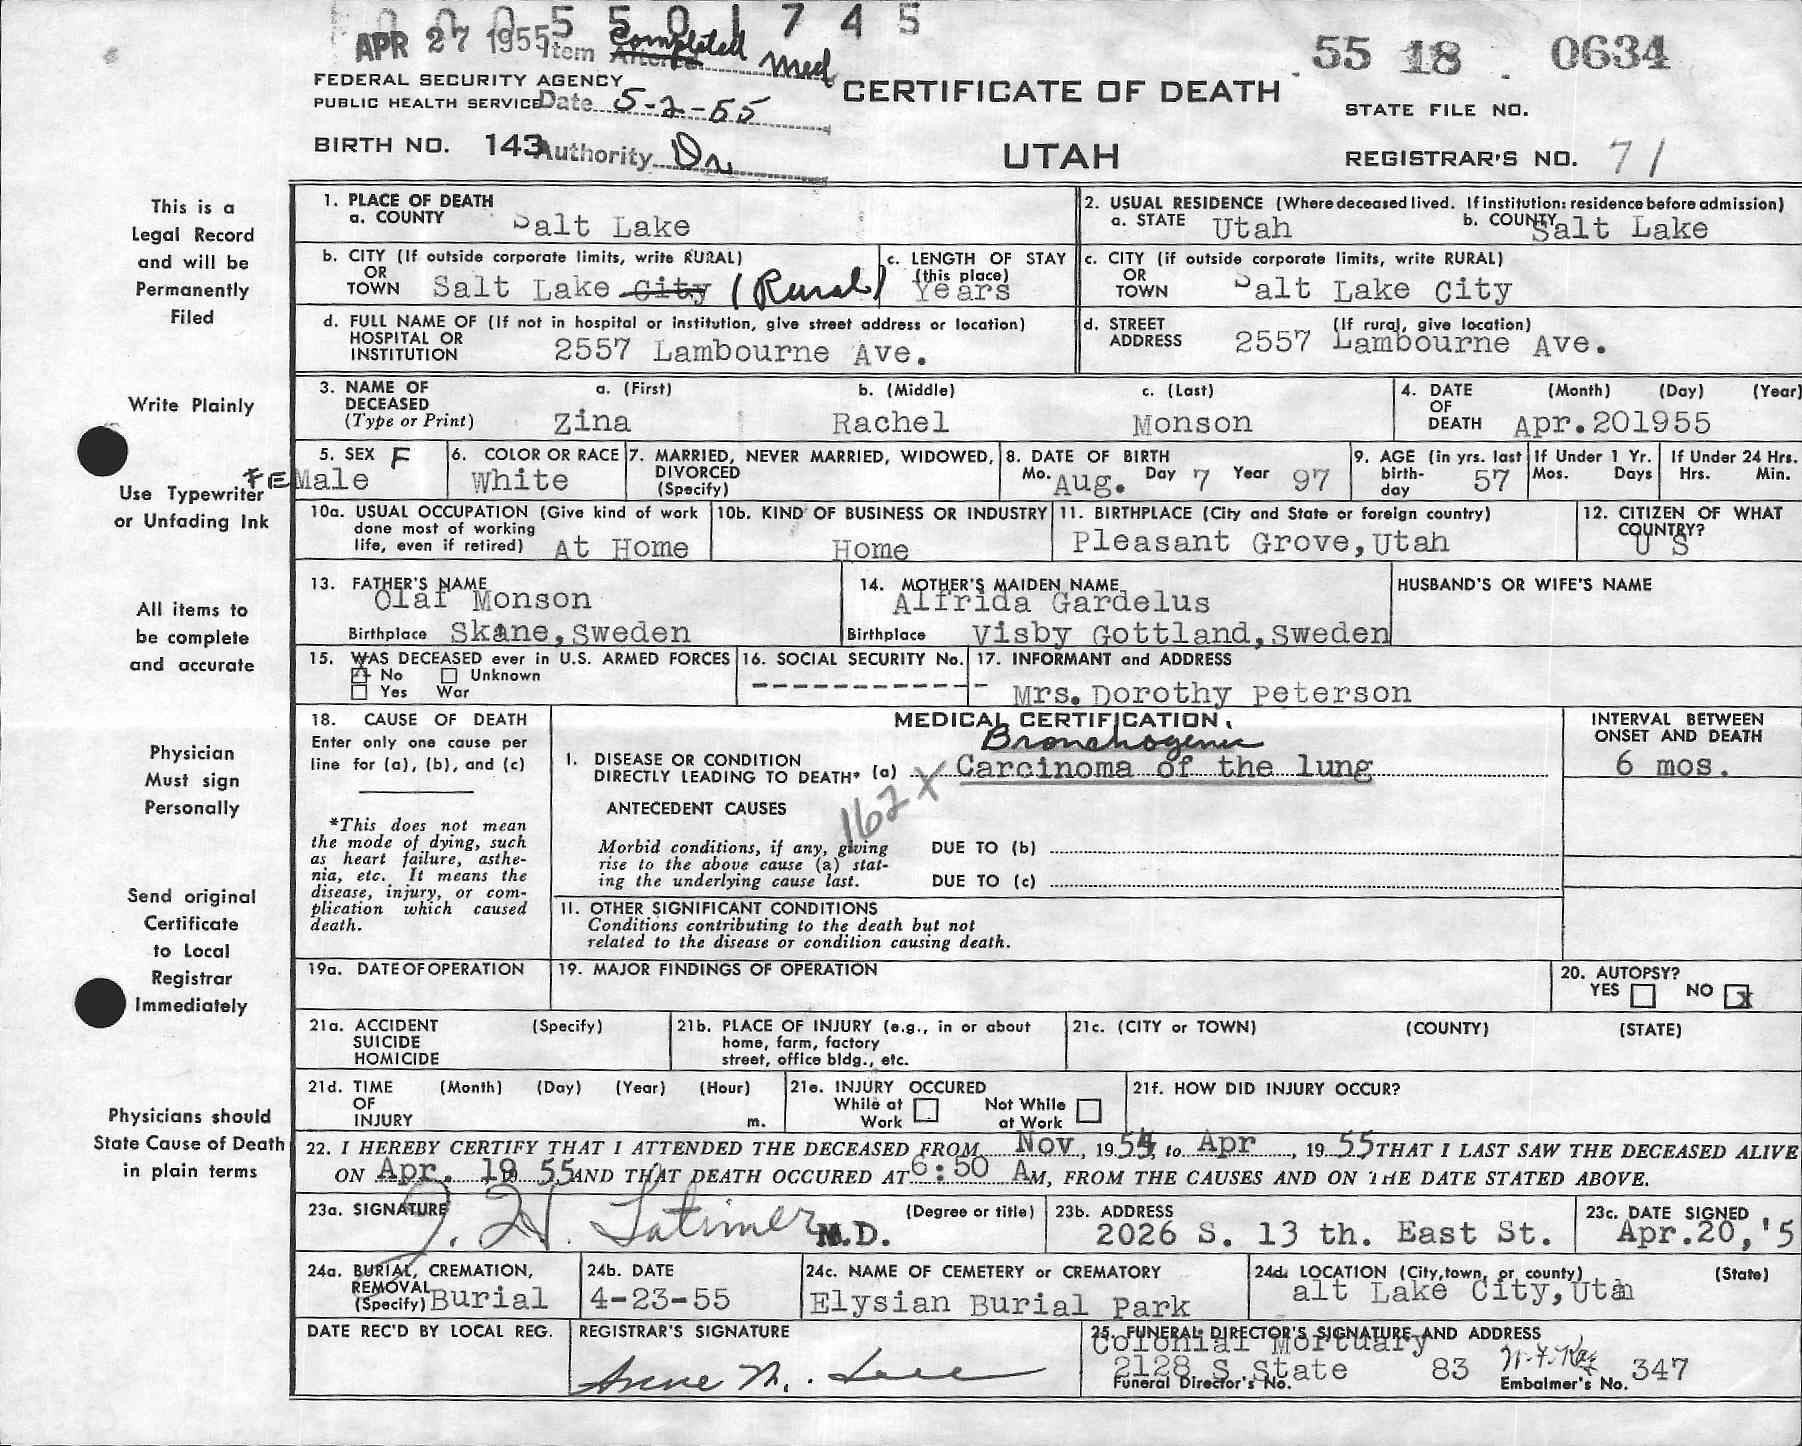 0005501745
APR 27 1955
Item Completed Med
FEDERAL SECURITY AGENCY
PUBLIC HEALTH SERVICE Date 5-2-55
CERTIFICATE OF DEATH
55 18 0634
STATE FILE NO.
BIRTH NO. 143 Authority Dr.
UTAH
REGISTRAR'S NO. 71
This is a
Legal Record
and will be
Permanently
Filed
Write Plainly
Use Typewriter
or Unfading Ink
All items to
be complete
and accurate
Physician
Must sign
Personally
Send original
Certificate
to Local
Registrar
Immediately
Physicians should
State Cause of Death
in plain terms
1. PLACE OF DEATH
a. COUNTY Salt Lake
2. USUAL RESIDENCE (Where deceased lived. If institution: residence before admission)
a. STATE Utah b. COUNTY Salt Lake
b. CITY (If outside corporate limits, write RURAL)
OR
TOWN Salt Lake City (Rural)
c. LENGTH OF STAY
(this place)
Years
c. CITY (if outside corporate limits, write RURAL)
OR
TOWN Salt Lake City
d. FULL NAME OF (If not in hospital or institution, give street address or location)
HOSPITAL OR
INSTITUTION 2557 Lambourne Ave.
d. STREET (If rural, give location)
ADDRESS 2557 Lambourne Ave.
3. NAME OF a. (First) b. (Middle) c. (Last)
DECEASED
(Type or Print) Zina Rachel Monson
4. DATE (Month) (Day) (Year)
OF
DEATH Apr.201955
5. SEX F
FEMale
6. COLOR OR RACE
White
7. MARRIED, NEVER MARRIED, WIDOWED,
DIVORCED
(Specify)
8. DATE OF BIRTH
Mo. Aug. Day 7 Year 97
9. AGE (in yrs. last
birth-
day 57
If Under 1 Yr.
Mos. Days
If Under 24 Hrs.
Hrs. Min.
10a. USUAL OCCUPATION (Give kind of work
done most of working
life, even if retired) At Home
10b. KIND OF BUSINESS OR INDUSTRY
Home
11. BIRTHPLACE (City and State or foreign country)
Pleasant Grove, Utah
12. CITIZEN OF WHAT
COUNTRY?
U S
13. FATHER'S NAME
Olaf Monson
Birthplace Skane, Sweden
14. MOTHER'S MAIDEN NAME
Alfrida Gardelus
Birthplace Visby Gottland, Sweden
HUSBAND'S OR WIFE'S NAME
15. WAS DECEASED ever in U.S. ARMED FORCES
X No Unknown
Yes War
16. SOCIAL SECURITY No.
--------------
17. INFORMANT and ADDRESS
Mrs. Dorothy Peterson
18. CAUSE OF DEATH
Enter only one cause per
line for (a), (b), and (c)
*This does not mean
the mode of dying, such
as heart failure, asthe-
nia, etc. It means the
disease, injury, or com-
plication which caused
death.
MEDICAL CERTIFICATION
Bronchogenic
I. DISEASE OR CONDITION
DIRECTLY LEADING TO DEATH* (a) Carcinoma of the lung
162 X
ANTECEDENT CAUSES
Morbid conditions, if any, giving
rise to the above cause (a) stat-
ing the underlying cause last.
DUE TO (b)
DUE TO (c)
11. OTHER SIGNIFICANT CONDITIONS
Conditions contributing to the death but not
related to the disease or condition causing death.
INTERVAL BETWEEN
ONSET AND DEATH
6 mos.
19a. DATE OF OPERATION
19. MAJOR FINDINGS OF OPERATION
20. AUTOPSY?
YES NO X
21a. ACCIDENT (Specify)
SUICIDE
HOMICIDE
21b. PLACE OF INJURY (e.g., in or about
home, farm, factory
street, office bldg., etc.
21c. (CITY or TOWN) (COUNTY) (STATE)
21d. TIME (Month) (Day) (Year) (Hour)
OF
INJURY m.
21e. INJURY OCCURED
While at Not While
Work at Work
21f. HOW DID INJURY OCCUR?
22. I HEREBY CERTIFY THAT I ATTENDED THE DECEASED FROM Nov, 1954, to Apr, 1955 THAT I LAST SAW THE DECEASED ALIVE
ON Apr. 19 55 AND THAT DEATH OCCURED AT 6:50 AM, FROM THE CAUSES AND ON THE DATE STATED ABOVE.
23a. SIGNATURE (Degree or title)
J. H. Latimer M.D.
23b. ADDRESS
2026 S. 13 th. East St.
23c. DATE SIGNED
Apr.20,'5
24a. BURIAL, CREMATION,
REMOVAL
(Specify) Burial
24b. DATE
4-23-55
24c. NAME OF CEMETERY or CREMATORY
Elysian Burial Park
24d. LOCATION (City, town, or county) (State)
alt Lake City, Utah
DATE REC'D BY LOCAL REG.
REGISTRAR'S SIGNATURE
Anne M. Lee
25. FUNERAL DIRECTOR'S SIGNATURE AND ADDRESS
Colonial Mortuary
2128 S State 83 347
Funeral Director's No. Embalmer's No.